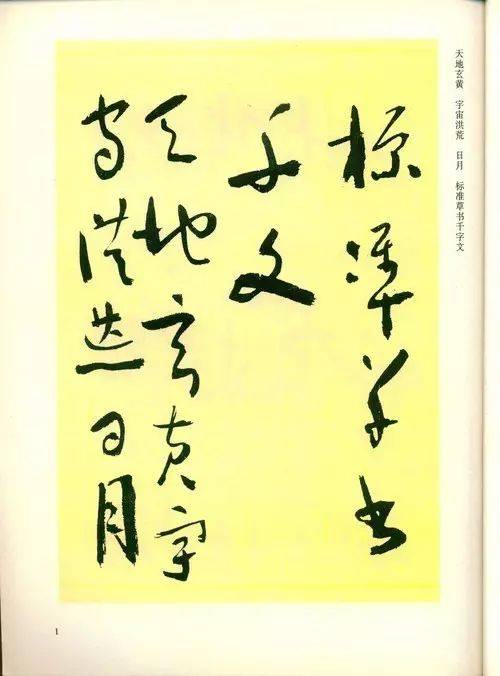 天地玄黄 宇宙洪荒 日月 标准草书千字文
標準草書
千文
天地玄黃宇
宙洪荒日月
1